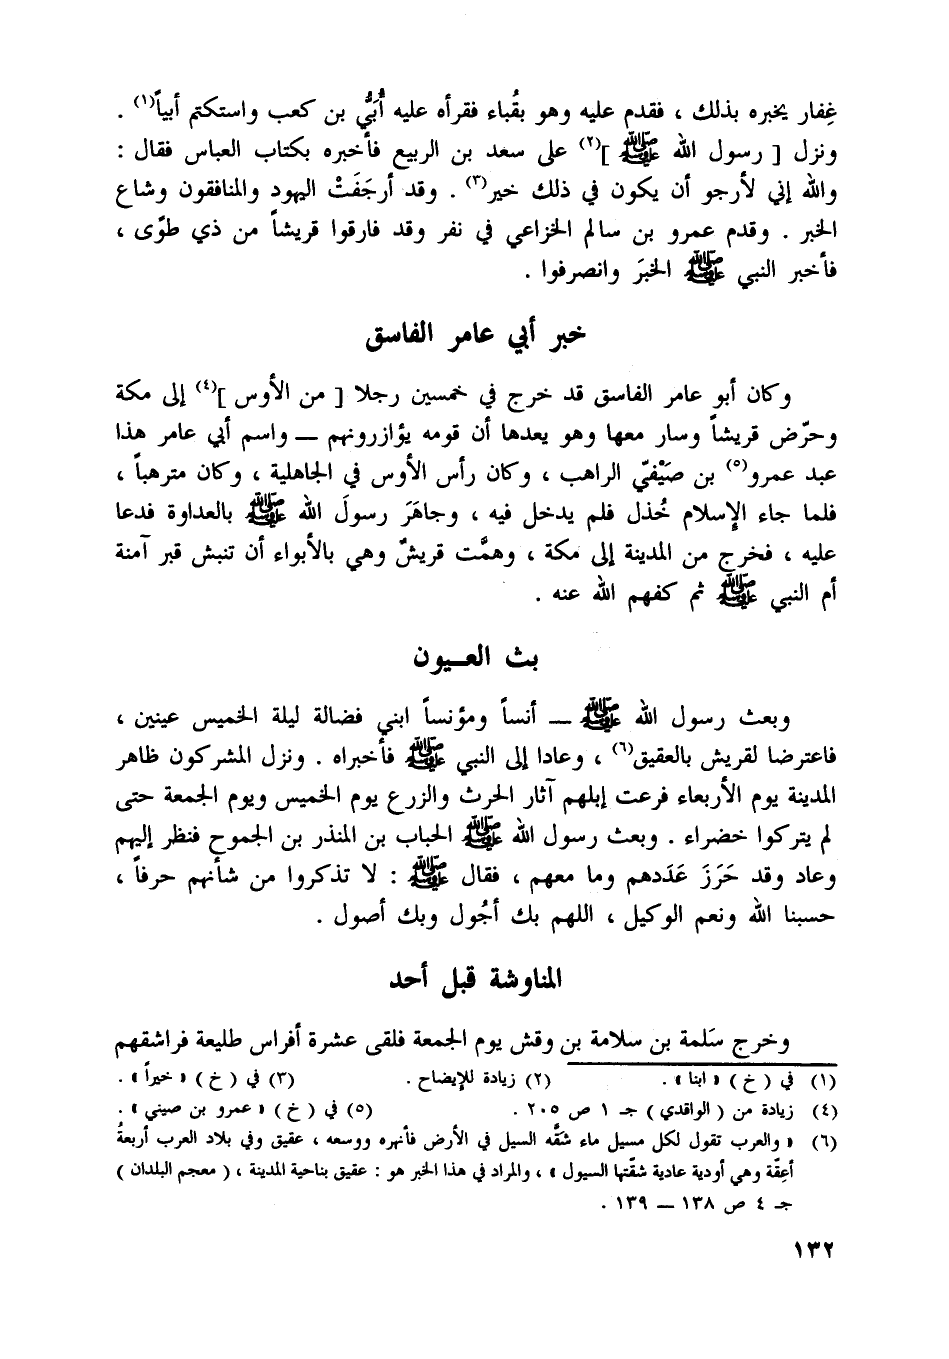 غِفار يخبره بذلك ، فقدم عليه وهو بقُباء فقرأه عليه أُبَيُّ بن كعب واستكتم أبياً(١) .
ونزل [ رسول الله ﷺ ](٢) على سعد بن الربيع فأخبره بكتاب العباس فقال :
والله إني لأرجو أن يكون في ذلك خير(٣) . وقد أرجَفَتْ اليهود والمنافقون وشاع
الخبر . وقدم عمرو بن سالم الخزاعي في نفر وقد فارقوا قريشاً من ذي طوًى ،
فأخبر النبي ﷺ الخبَر وانصرفوا .
خبر أبي عامر الفاسق
وكان أبو عامر الفاسق قد خرج في خمسين رجلا [ من الأوس ](٤) إلى مكة
وحرّض قريشاً وسار معها وهو يعدها أن قومه يؤازرونهم — واسم أبي عامر هذا
عبد عمرو(٥) بن صَيْفيّ الراهب ، وكان رأس الأوس في الجاهلية ، وكان مترهباً ،
فلما جاء الإسلام خُذل فلم يدخل فيه ، وجاهَرَ رسولَ الله ﷺ بالعداوة فدعا
عليه ، فخرج من المدينة إلى مكة ، وهمَّت قريشٌ وهي بالأبواء أن تنبش قبر آمنة
أم النبي ﷺ ثم كفهم الله عنه .
بث العـيون
وبعث رسول الله ﷺ — أنساً ومؤنساً ابني فضالة ليلة الخميس عينين ،
فاعترضا لقريش بالعقيق(٦) ، وعادا إلى النبي ﷺ فأخبراه . ونزل المشركون ظاهر
المدينة يوم الأربعاء فرعت إبلهم آثار الحرث والزرع يوم الخميس ويوم الجمعة حتى
لم يتركوا خضراء . وبعث رسول الله ﷺ الحباب بن المنذر بن الجموح فنظر إليهم
وعاد وقد حَرَزَ عَدَدهم وما معهم ، فقال ﷺ : لا تذكروا من شأنهم حرفاً ،
حسبنا الله ونعم الوكيل ، اللهم بك أجُول وبك أصول .
المناوشة قبل أحد
وخرج سَلمة بن سلامة بن وقش يوم الجمعة فلقى عشرة أفراس طليعة فراشقهم
(١) في ( خ ) « ابنا » . (٢) زيادة للإيضاح . (٣) في ( خ ) « خيراً » .
(٤) زيادة من ( الواقدي ) جـ ١ ص ٢٠٥ . (٥) في ( خ ) « عمرو بن صيني » .
(٦) « والعرب تقول لكل مسيل ماء شقَّه السيل في الأرض فأنهره ووسعه ، عقيق وفي بلاد العرب أربعةُ
أعِقّة وهي أودية عادية شقّتها السيول » ، والمراد في هذا الخبر هو : عقيق بناحية المدينة ، ( معجم البلدان )
جـ ٤ ص ١٣٨ — ١٣٩ .
١٣٢